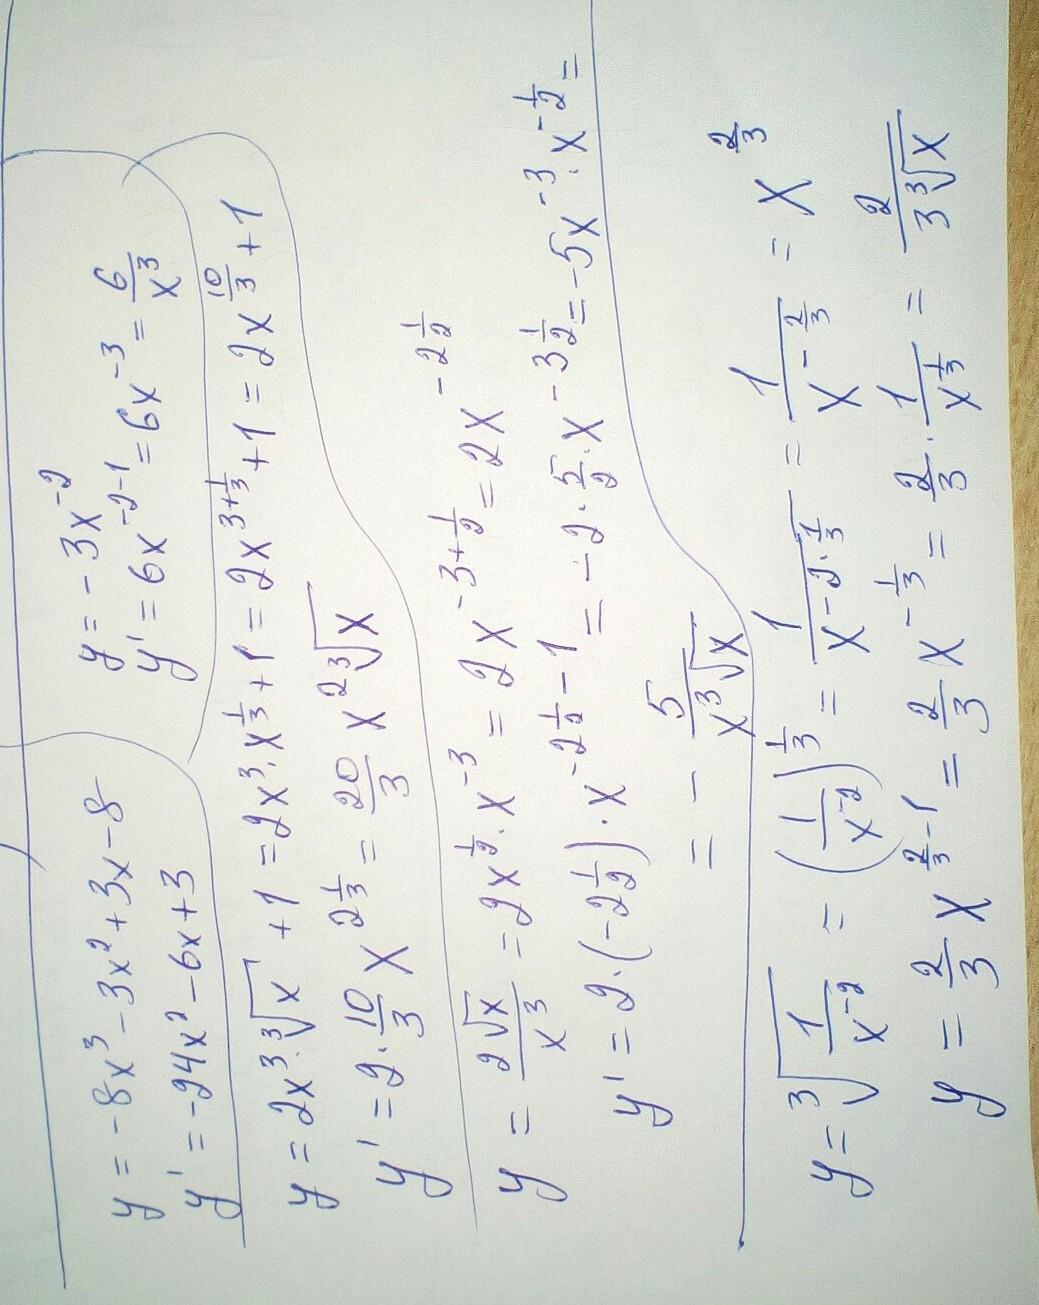 y = -8x³ - 3x² + 3x - 8
y' = -24x² - 6x + 3
y = -3x⁻²
y' = 6x⁻²⁻¹ = 6x⁻³ = 6/x³
y = 2x³·∛x + 1 = 2x³·x^(1/3) + 1 = 2x^(3+1/3) + 1 = 2x^(10/3) + 1
y' = 2·10/3 x^(2 1/3) = 20/3 x² ∛x
y = 2√x/x³ = 2x^(1/2)·x⁻³ = 2x^(-3+1/2) = 2x^(-2 1/2)
y' = 2·(-2 1/2)·x^(-2 1/2 - 1) = -2·5/2·x^(-3 1/2) = -5x⁻³·x^(-1/2) =
= - 5/(x³√x)
y = ∛(1/x⁻²) = (1/x⁻²)^(1/3) = 1/x^(-2·1/3) = 1/x^(-2/3) = x^(2/3)
y = 2/3 x^(2/3 - 1) = 2/3 x^(-1/3) = 2/3·1/x^(1/3) = 2/(3∛x)